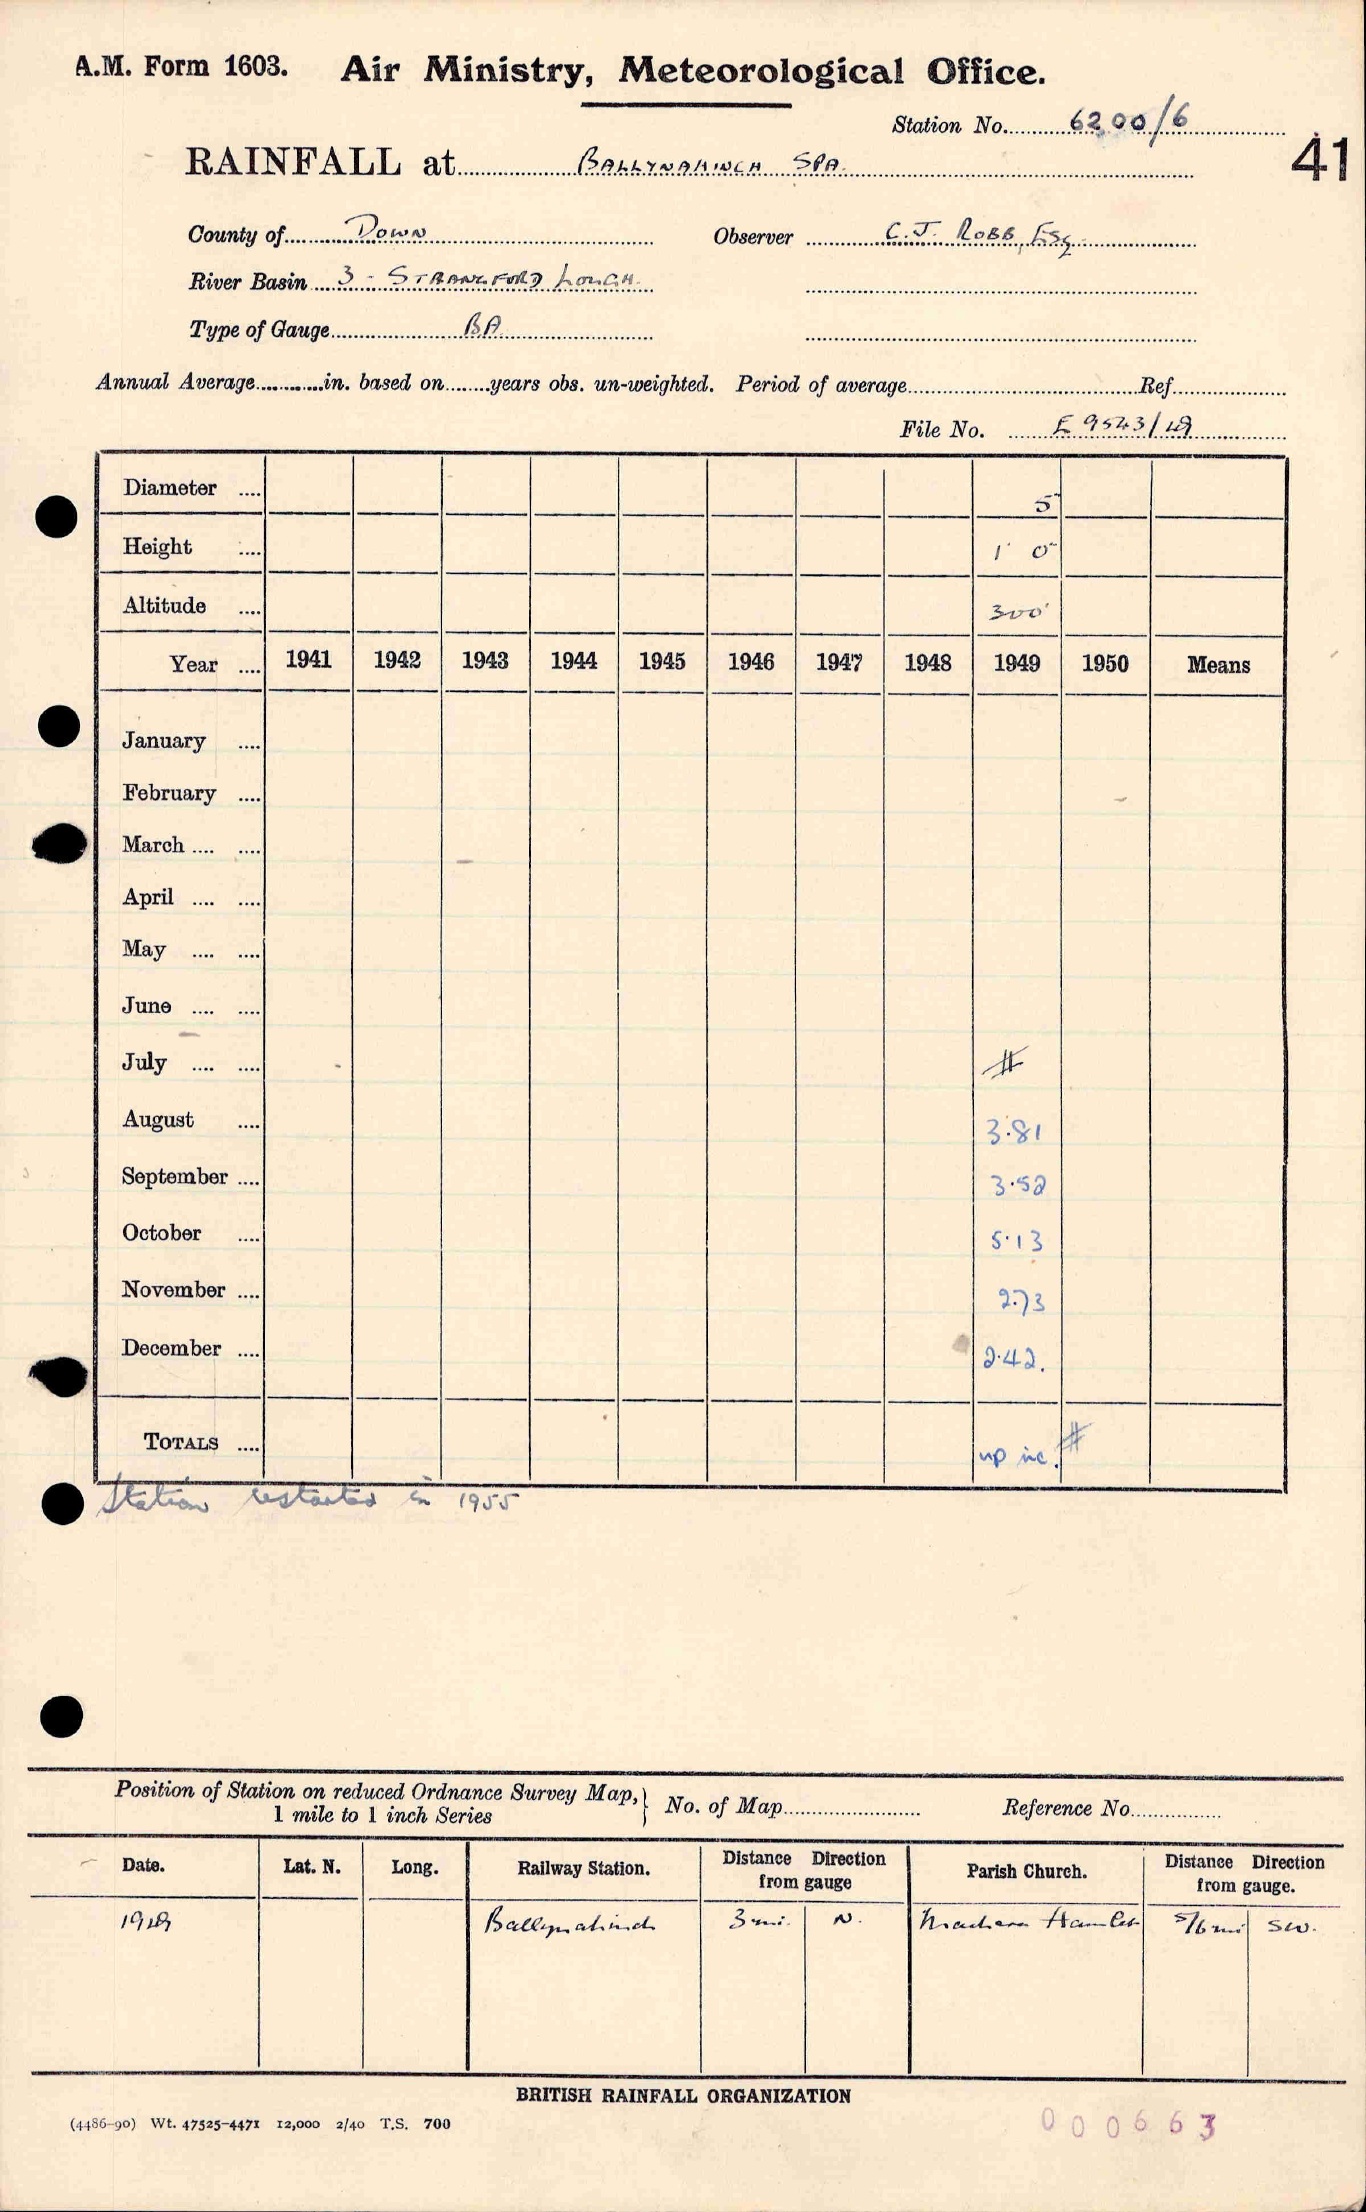 A.M. Form 1603. Air Ministry, Meteorological Office.
Station No. 6200/6
41
RAINFALL at BALLYNAHINCH SPA.
County of Down Observer C.J. ROBB, Esq
River Basin 3 - STRANGFORD LOUGH.
Type of Gauge BA
Annual Average in. based on years obs. un-weighted. Period of average Ref.
File No. E 9543/49
Diameter 5"
Height 1' 0"
Altitude 300'
Year 1941 1942 1943 1944 1945 1946 1947 1948 1949 1950 Means
January
February
March
April
May
June
July #
August 3.81
September 3.52
October 5.13
November 2.73
December 2.42.
TOTALS up inc. #
Station restarted in 1955
Position of Station on reduced Ordnance Survey Map, } No. of Map Reference No.
1 mile to 1 inch Series
Date. Lat. N. Long. Railway Station. Distance Direction from gauge Parish Church. Distance Direction from gauge.
1949 Ballynahinch 3 mi. N. Hamlet 5/6 mi SW.
BRITISH RAINFALL ORGANIZATION
(4486-90) Wt. 47525-4471 12,000 2/40 T.S. 700
000663